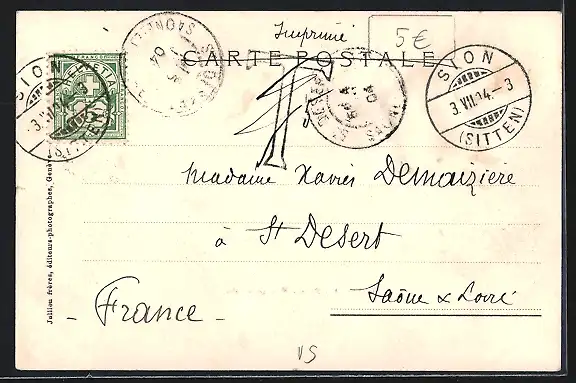 Imprimé
5€
CARTE POSTALE
HELVETIA
SION
3.VII.04.-3
(SITTEN)
SION
3.VII.04.-3
(SITTEN)
Madame Xavier Demaizière
à St Desert
Saône & Loire
- France -
Jullien frères, éditeurs-photographes, Genève
VS